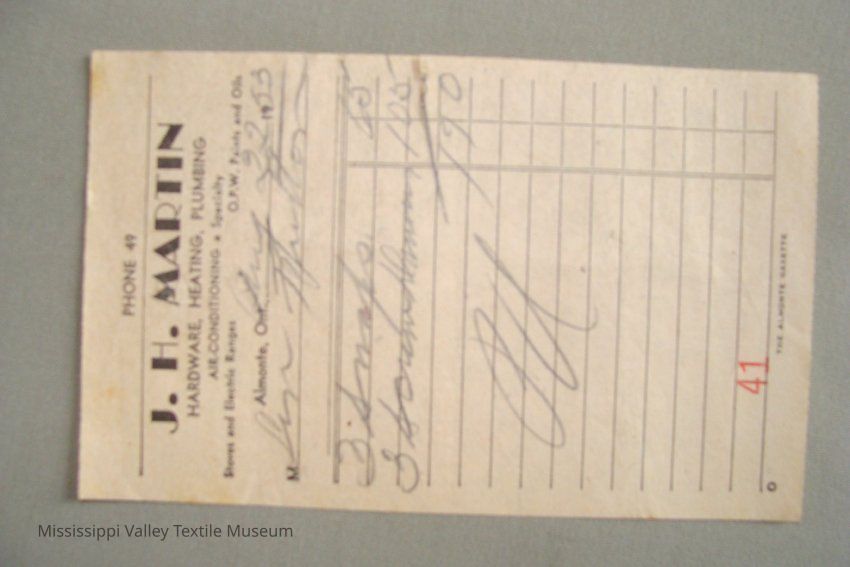 PHONE 49
J. H. MARTIN
HARDWARE, HEATING, PLUMBING
AIR-CONDITIONING a Specialty
Stoves and Electric Ranges O.P.W. Paints and Oils
Almonte, Ont. 22 1953
M
3 85
3 105
190
Pd.
41
THE ALMONTE GAZETTE
Mississippi Valley Textile Museum